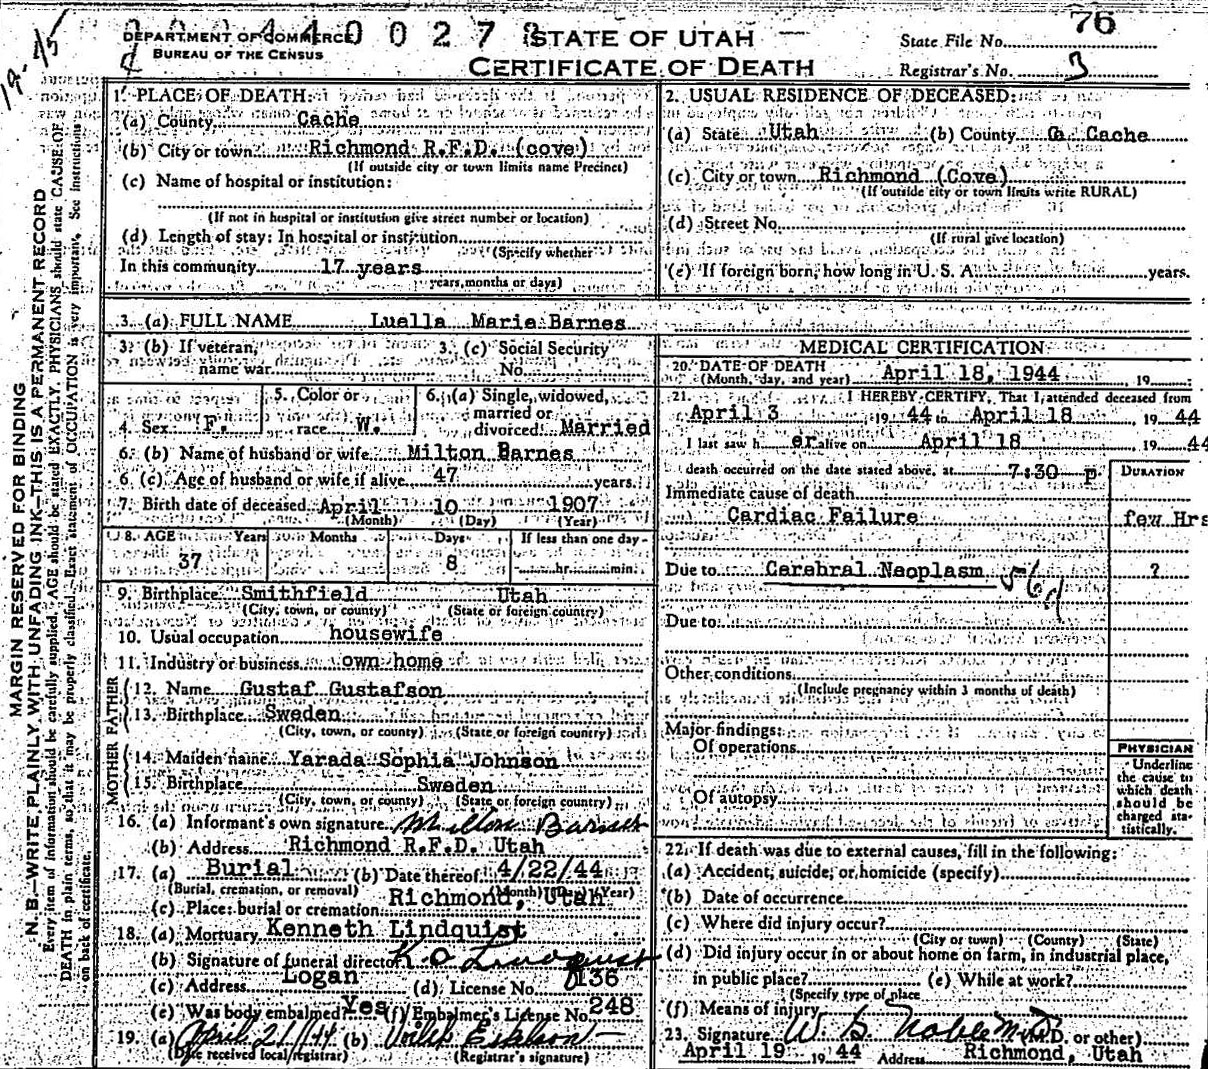 DEPARTMENT OF COMMERCE
BUREAU OF THE CENSUS
STATE OF UTAH
CERTIFICATE OF DEATH
State File No. 76
Registrar's No. 3
MARGIN RESERVED FOR BINDING
N. B.—WRITE PLAINLY, WITH UNFADING INK—THIS IS A PERMANENT RECORD
Every item of information should be carefully supplied. AGE should be stated EXACTLY. PHYSICIANS should state CAUSE OF
DEATH in plain terms, so that it may be properly classified. Exact statement of OCCUPATION is very important. See instructions
on back of certificate.
1. PLACE OF DEATH:
(a) County Cache
(b) City or town Richmond R.F.D. (cove)
(If outside city or town limits name Precinct)
(c) Name of hospital or institution:
(If not in hospital or institution give street number or location)
(d) Length of stay: In hospital or institution
(Specify whether
In this community 17 years
years, months or days)
2. USUAL RESIDENCE OF DECEASED:
(a) State Utah (b) County Ca Cache
(c) City or town Richmond (Cove)
(If outside city or town limits write RURAL)
(d) Street No.
(If rural give location)
(e) If foreign born, how long in U. S. A. years.
3. (a) FULL NAME Luella Marie Barnes
3. (b) If veteran, name war
3. (c) Social Security No.
4. Sex F.
5. Color or race W.
6. (a) Single, widowed, married or divorced Married
6. (b) Name of husband or wife Milton Barnes
6 (c) Age of husband or wife if alive 47 years.
7. Birth date of deceased April 10 1907
(Month) (Day) (Year)
8. AGE Years Months Days If less than one day
37 8 hr. min.
9. Birthplace Smithfield Utah
(City, town, or county) (State or foreign country)
10. Usual occupation housewife
11. Industry or business own home
FATHER
12. Name Gustaf Gustafson
13. Birthplace Sweden
(City, town, or county) (State or foreign country)
MOTHER
14. Maiden name Yarada Sophia Johnson
15. Birthplace Sweden
(City, town, or county) (State or foreign country)
16. (a) Informant's own signature Milton Barnes
(b) Address Richmond R.F.D. Utah
17. (a) Burial (b) Date thereof 4/22/44
(Burial, cremation, or removal) (Month) (Day) (Year)
(c) Place: burial or cremation Richmond, Utah
18. (a) Mortuary Kenneth Lindquist
(b) Signature of funeral director K. O. Lindquist
(c) Address Logan (d) License No. 136
(e) Was body embalmed Yes (f) Embalmer's License No. 248
19. (a) April 21/44 (b)
(Date received local registrar) (Registrar's signature)
MEDICAL CERTIFICATION
20. DATE OF DEATH
(Month, day, and year) April 18, 1944, 19
21. I HEREBY CERTIFY, That I attended deceased from
April 3 19 44 to April 18, 19 44
I last saw h er alive on April 18 19 44
death occurred on the date stated above, at 7:30 p
DURATION
Immediate cause of death
Cardiac Failure few Hrs
Due to Cerebral Neoplasm 56d ?
Due to
Other conditions
(Include pregnancy within 3 months of death)
Major findings:
Of operations
Of autopsy
PHYSICIAN
Underline
the cause to
which death
should be
charged sta-
tistically.
22. If death was due to external causes, fill in the following:
(a) Accident, suicide, or homicide (specify)
(b) Date of occurrence
(c) Where did injury occur?
(City or town) (County) (State)
(d) Did injury occur in or about home on farm, in industrial place,
in public place? (e) While at work?
(Specify type of place
(f) Means of injury
23. Signature (M.D. or other)
April 19 19 44 Address Richmond, Utah